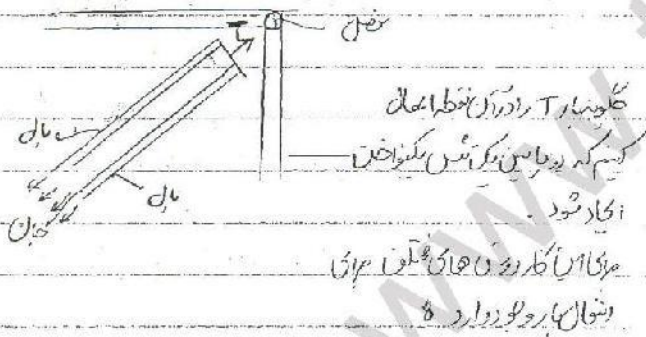 مفصل
T
بال
بال
جان
چگونه بار T را در آن نقطه اعمال
کنیم که در پایین یک تنش یکنواخت
ایجاد شود .
برای این کار روش های مختلف برای
انتقال بار وجود دارد :
WWW